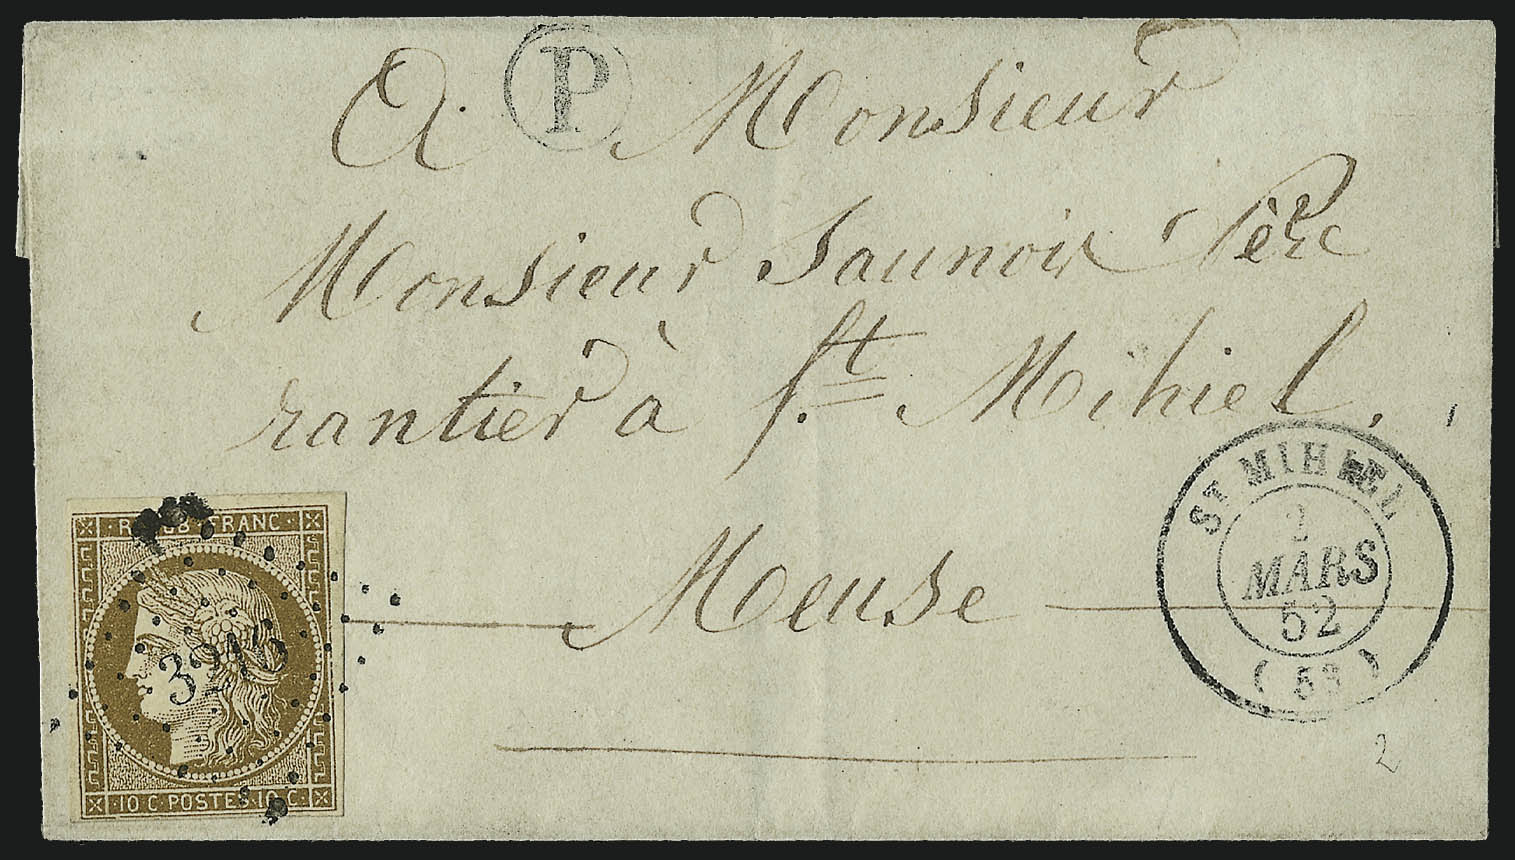 P
A Monsieur
Monsieur Saunois Père
rantier à St. Mihiel.
Meuse
ST MIHIEL
2
MARS
52
(53)
REPUB FRANC
3215
10 C·POSTES·10 C
2